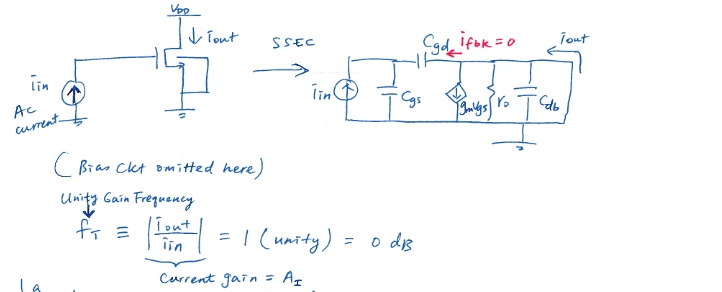 VDD
↓ iout
SSEC
iin
AC
current
Cgd
ifbk = 0
iout
iin
Cgs
gmvgs
ro
Cdb
(Bias ckt omitted here)
Unity Gain Frequency
fT ≡ |iout/iin| = 1 (unity) = 0 dB
Current gain = AI